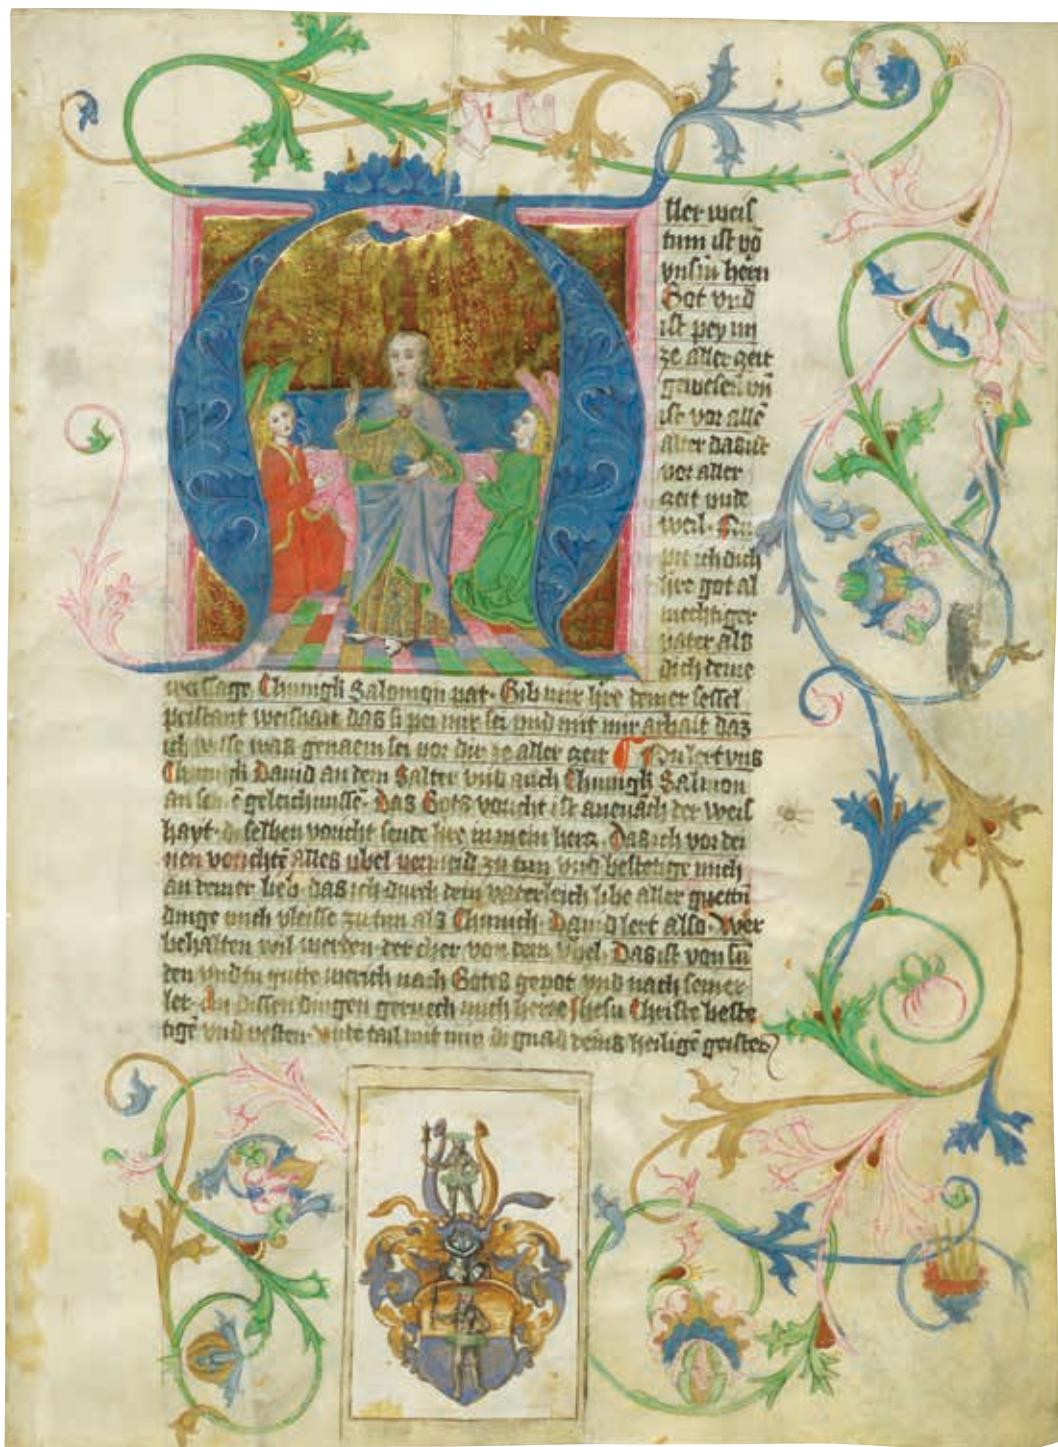 ller weis
tum ist vō
vnsm̄ hern
Got vnd
ist pey im
ze aller zeit
gewesen vn̄
ist vor allē
alter das ist
vor aller
zeit vnde
weil · Nu
pit ich dich
hre got al
mechtiger
vater als
dich deine
weissage Chunigk Salomon pat · Gib mir hre deiner sessel
peistant weishait das si pei mir sei vnd mit mir arbait daz
ich wisse was genaem sei vor dir ze aller zeit ¶ Du lert vns
Chunigk Dauid an dem Salter vnd auch Chunigk Salmon
an seinē geleichnussē · Das Gots voricht ist anenach der weis
hayt · di selben voricht sende hre in mein herz · Das ich vor dei
nen vorichtē alles vbel vermeid zu tun vnd bestetige mich
an deiner lieb das ich durch dein vaterleich libe aller guettn̄
dinge mich vleisse zu tun als Chunich · Dauid lert also · Wer
behalten wil werden · der cher von dem vbel · Das ist von sū
den vnd tu gutte werich nach Gotes gepot vnd nach seiner
ler · An dissen dingen geruech mich herre Jhesu Christe beste
tigē vnd vesten · vnde tail mit mir di gnad deins heiligē geistes